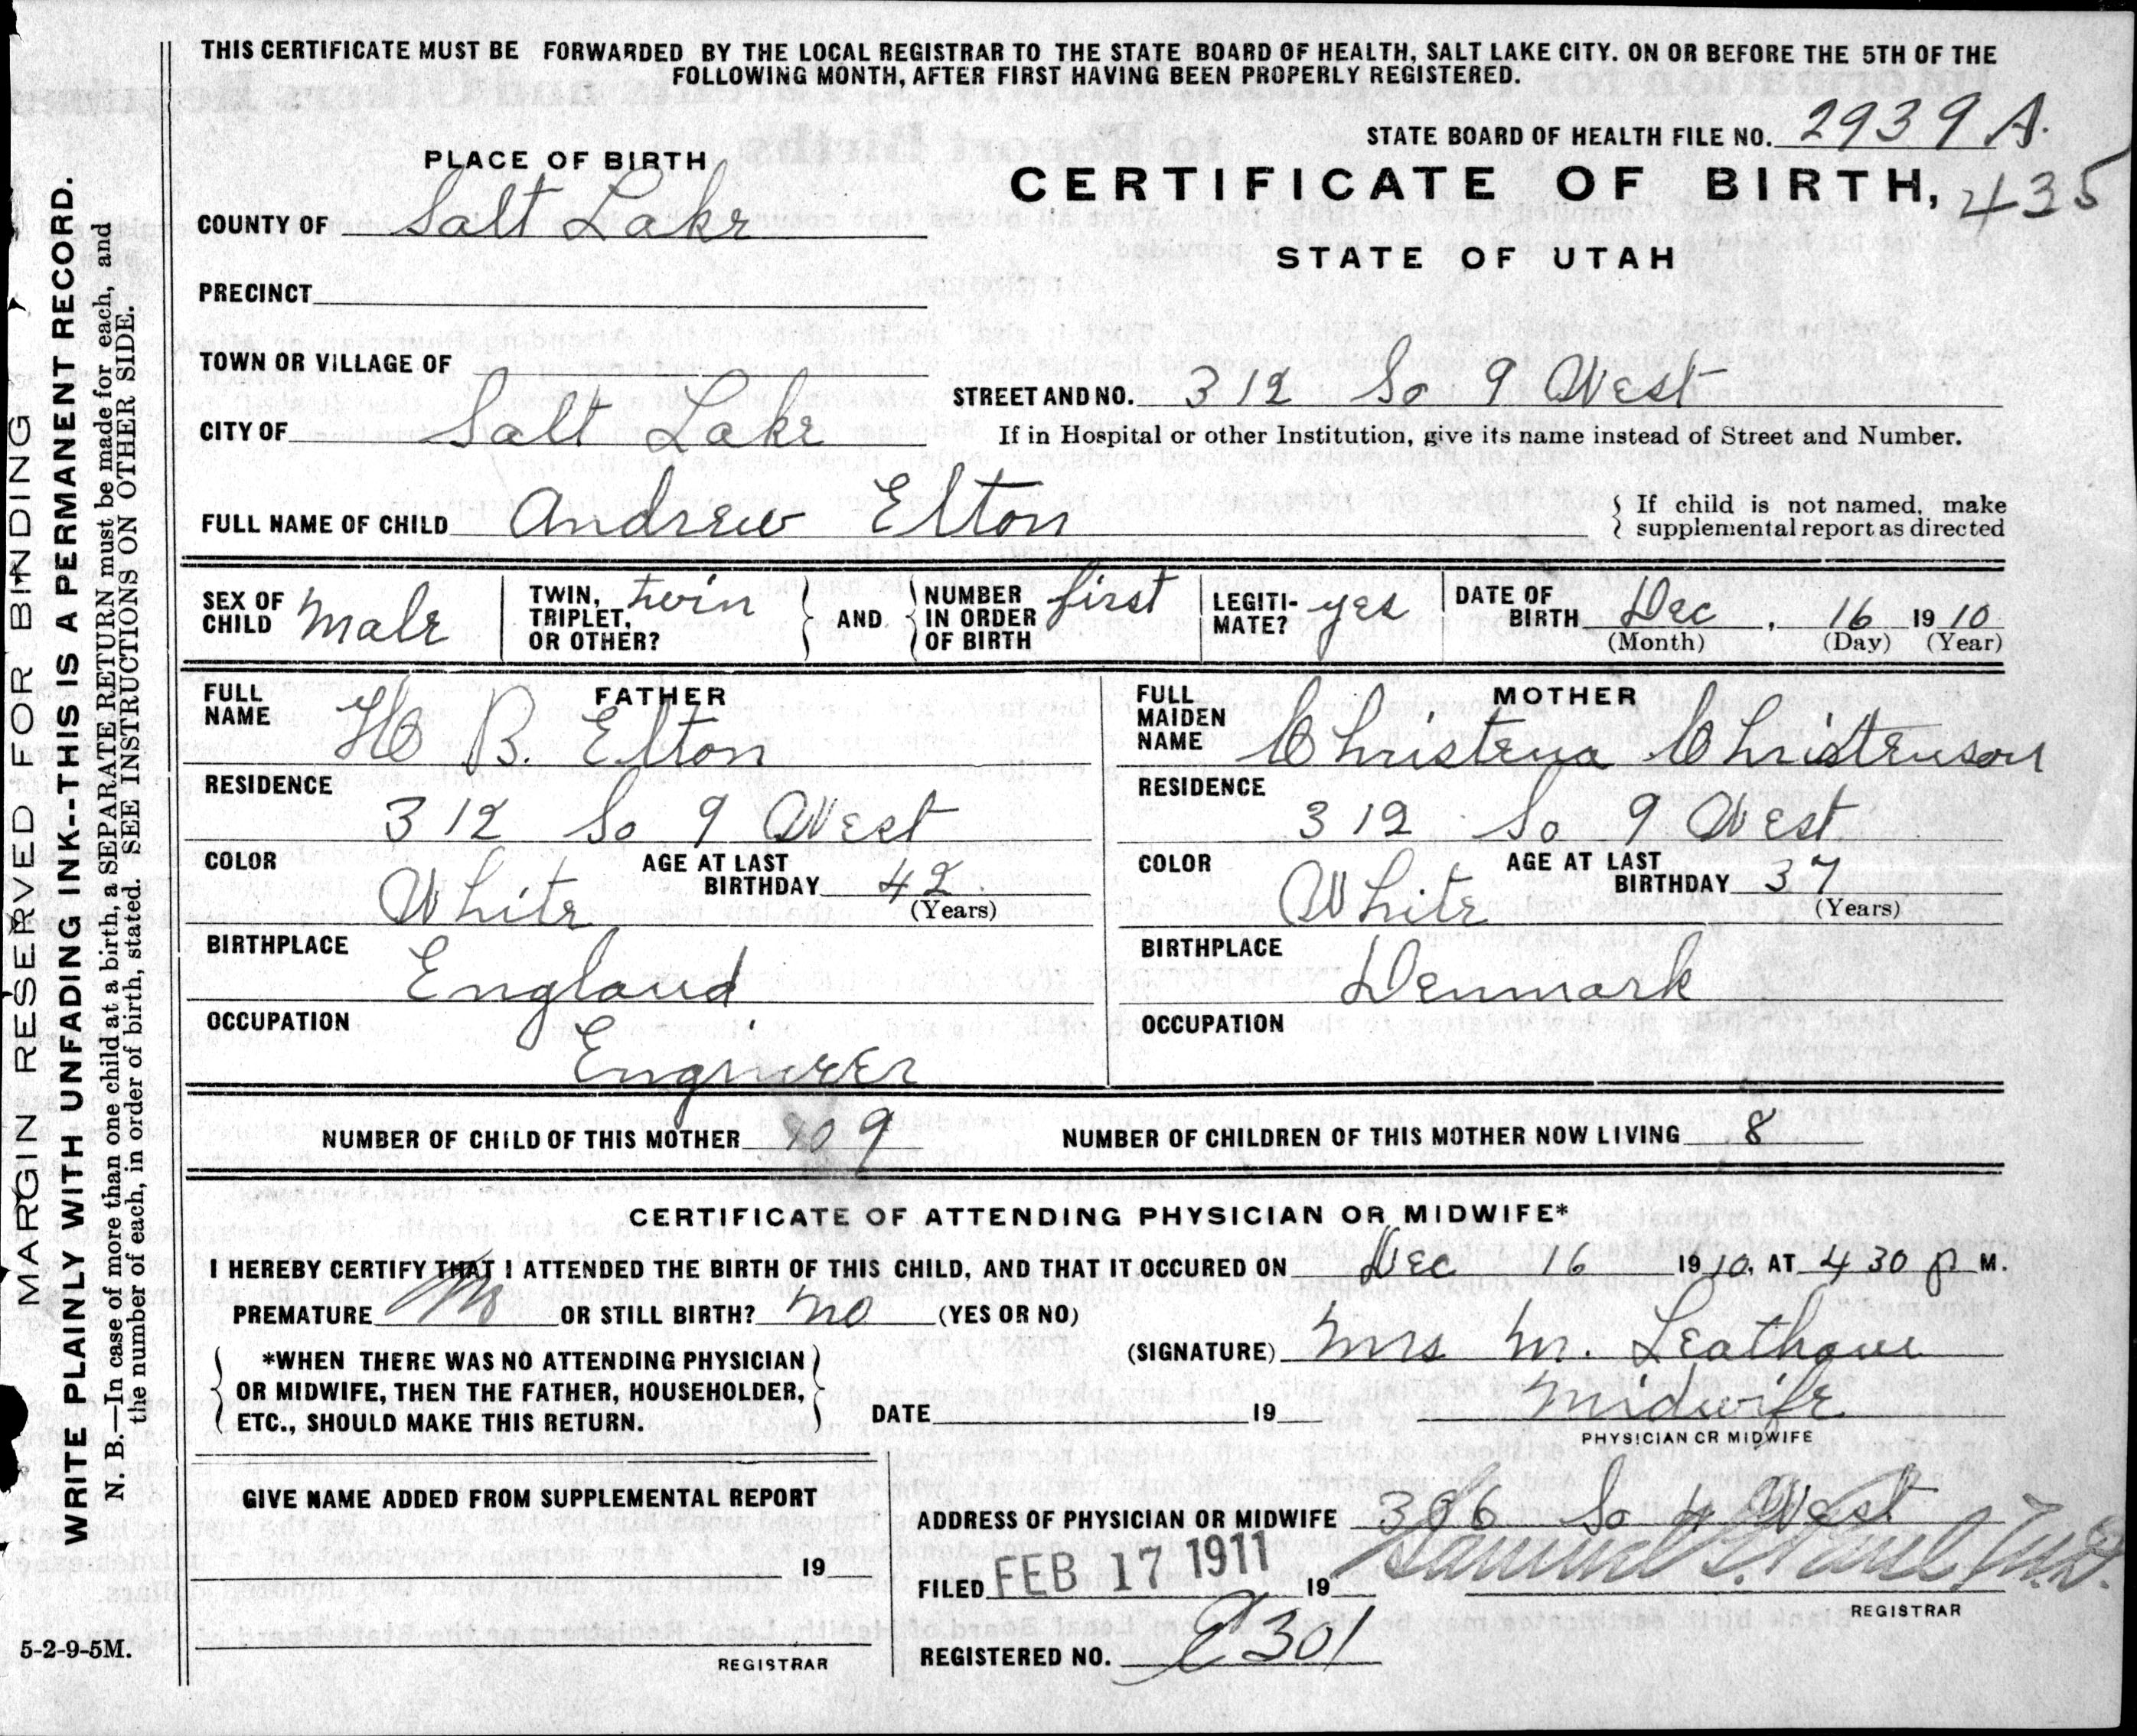 THIS CERTIFICATE MUST BE FORWARDED BY THE LOCAL REGISTRAR TO THE STATE BOARD OF HEALTH, SALT LAKE CITY. ON OR BEFORE THE 5TH OF THE
FOLLOWING MONTH, AFTER FIRST HAVING BEEN PROPERLY REGISTERED.
STATE BOARD OF HEALTH FILE NO. 2939 A.
PLACE OF BIRTH
CERTIFICATE OF BIRTH, 435
COUNTY OF Salt Lake
STATE OF UTAH
PRECINCT
TOWN OR VILLAGE OF
STREET AND NO. 312 So 9 West
CITY OF Salt Lake
If in Hospital or other Institution, give its name instead of Street and Number.
FULL NAME OF CHILD Andrew Elton
If child is not named, make
supplemental report as directed
SEX OF CHILD Male
TWIN, TRIPLET, OR OTHER? twin
AND
NUMBER IN ORDER OF BIRTH first
LEGITI-MATE? yes
DATE OF BIRTH Dec. 16 1910
(Month) (Day) (Year)
FATHER
FULL NAME H B. Elton
RESIDENCE
312 So 9 West
COLOR White AGE AT LAST BIRTHDAY 42
(Years)
BIRTHPLACE
England
OCCUPATION
Engineer
MOTHER
FULL MAIDEN NAME Christena Christenson
RESIDENCE
312 So 9 West
COLOR White AGE AT LAST BIRTHDAY 37
(Years)
BIRTHPLACE
Denmark
OCCUPATION
NUMBER OF CHILD OF THIS MOTHER 9
NUMBER OF CHILDREN OF THIS MOTHER NOW LIVING 8
CERTIFICATE OF ATTENDING PHYSICIAN OR MIDWIFE*
I HEREBY CERTIFY THAT I ATTENDED THE BIRTH OF THIS CHILD, AND THAT IT OCCURED ON Dec 16 1910, AT 4 30 P M.
PREMATURE OR STILL BIRTH? no (YES OR NO)
(SIGNATURE) Mrs M.
*WHEN THERE WAS NO ATTENDING PHYSICIAN
OR MIDWIFE, THEN THE FATHER, HOUSEHOLDER,
ETC., SHOULD MAKE THIS RETURN.
DATE 19 Midwife
PHYSICIAN OR MIDWIFE
GIVE NAME ADDED FROM SUPPLEMENTAL REPORT
19
REGISTRAR
ADDRESS OF PHYSICIAN OR MIDWIFE 306 So 4 West
FILED FEB 17 1911 19
REGISTRAR
REGISTERED NO. 301
MARGIN RESERVED FOR BINDING
WRITE PLAINLY WITH UNFADING INK--THIS IS A PERMANENT RECORD.
N. B.—In case of more than one child at a birth, a SEPARATE RETURN must be made for each, and
the number of each, in order of birth, stated. SEE INSTRUCTIONS ON OTHER SIDE.
5-2-9-5M.